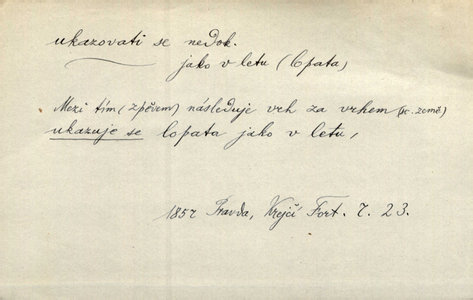 ukazovati se nedok.
jako v letu (lopata)
Mezi tím (zpěvem) následuje vrh za vrhem (sc. země)
ukazuje se lopata jako v letu,
1857 Pravda, Krejčí Fort. 7. 23.